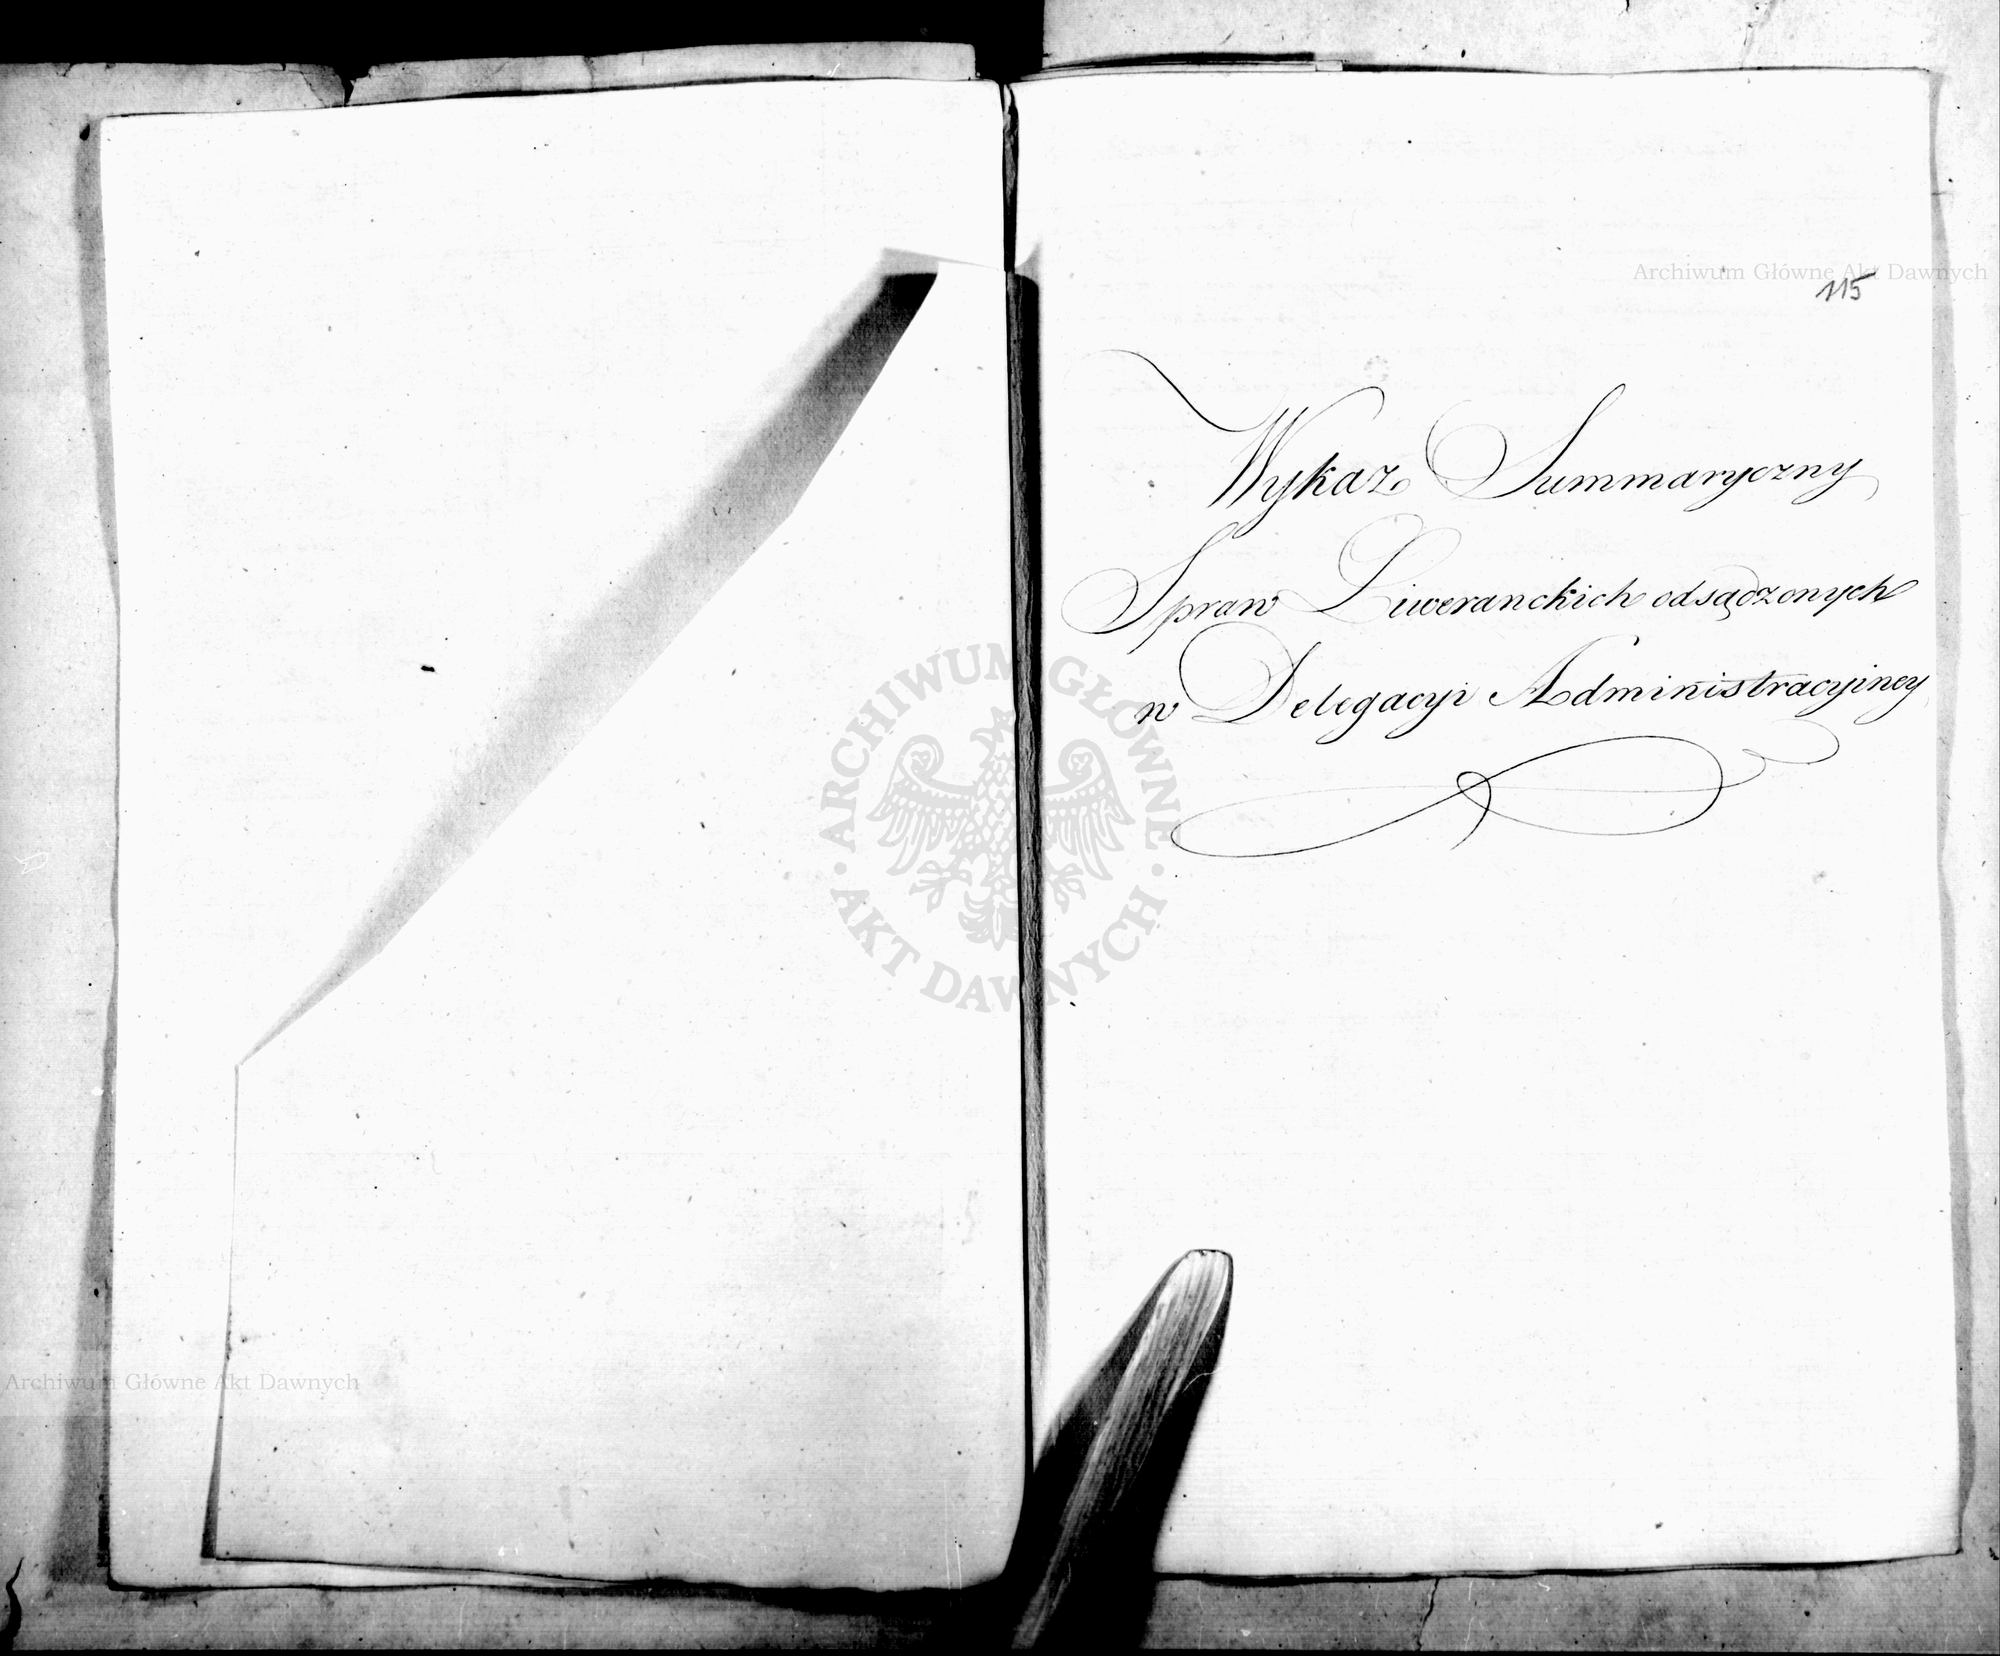 Archiwum Główne Akt Dawnych
115
Wykaz Summaryczny
Spraw Liweranckich odsądzonych
w Delegacyi Administracyiney
ARCHIWUM GŁÓWNE
AKT DAWNYCH
Archiwum Główne Akt Dawnych